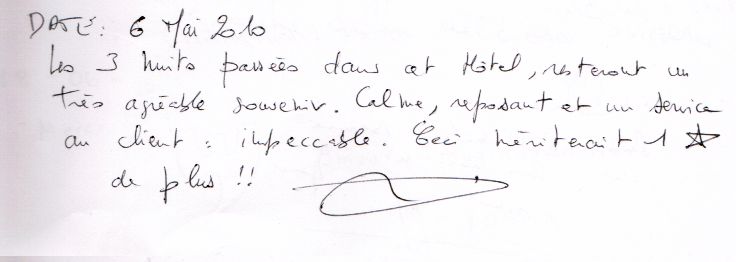 DATE: 6 Mai 2010
Les 3 nuits passées dans cet Hôtel, resteront un
très agréable souvenir. Calme, reposant et un service
au client : impeccable. Ceci mériterait 1 ☆
de plus !!